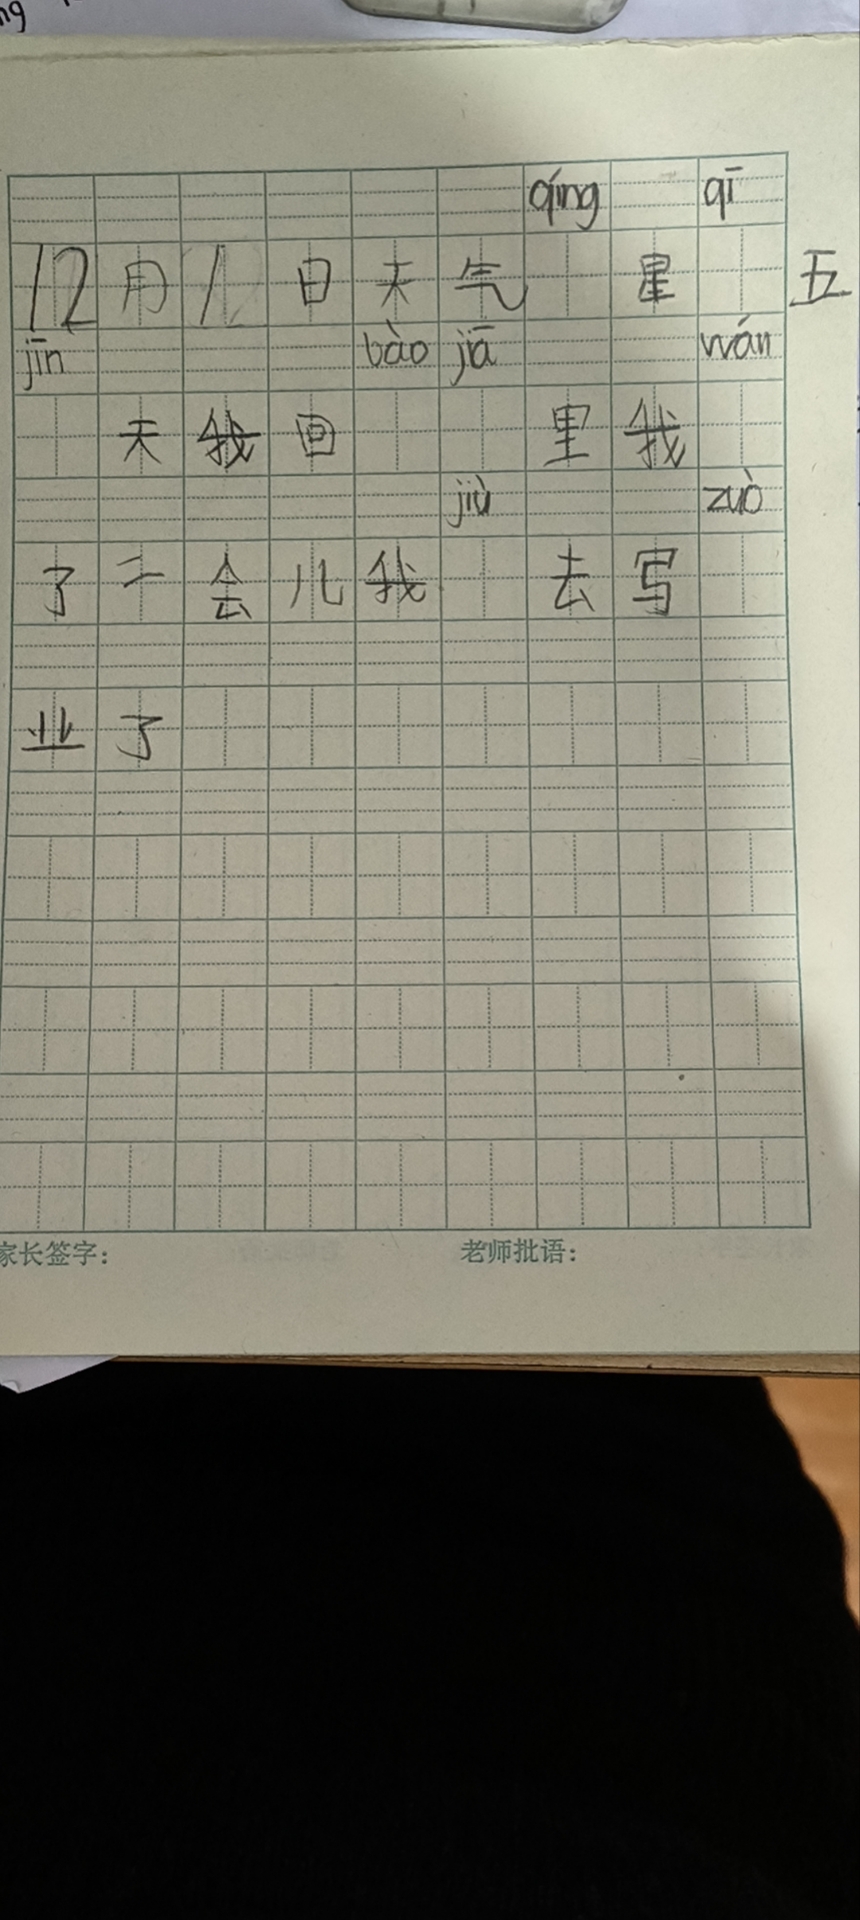 ng
qíng qī
12用1日天气 星 五
jīn bào jiā wán
天我回 里我
jiù zuò
了二会儿我 去写
业了
家长签字： 老师批语：